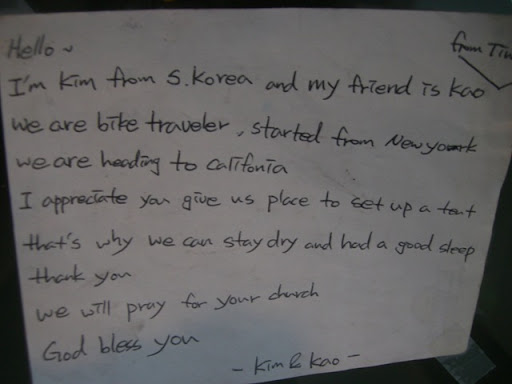 Hello ~
from Tin
I'm Kim from S. Korea and my friend is Kao
we are bike traveler, started from New york
we are heading to califonia
I appreciate you give us place to set up a tent
that's why we can stay dry and had a good sleep
thank you
we will pray for your church
God bless you
- Kim & Kao -